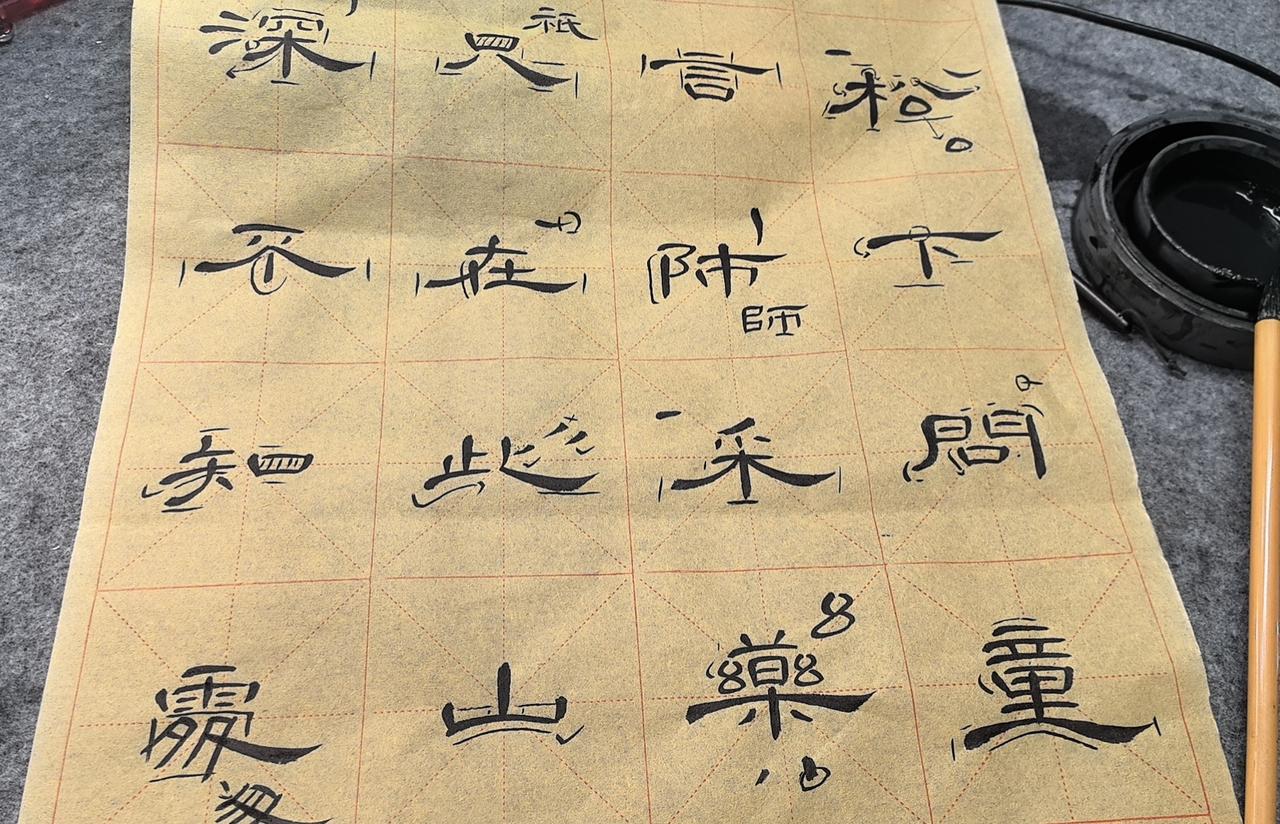 松下問童
言師采藥
只在此山
深不知處
祇
師